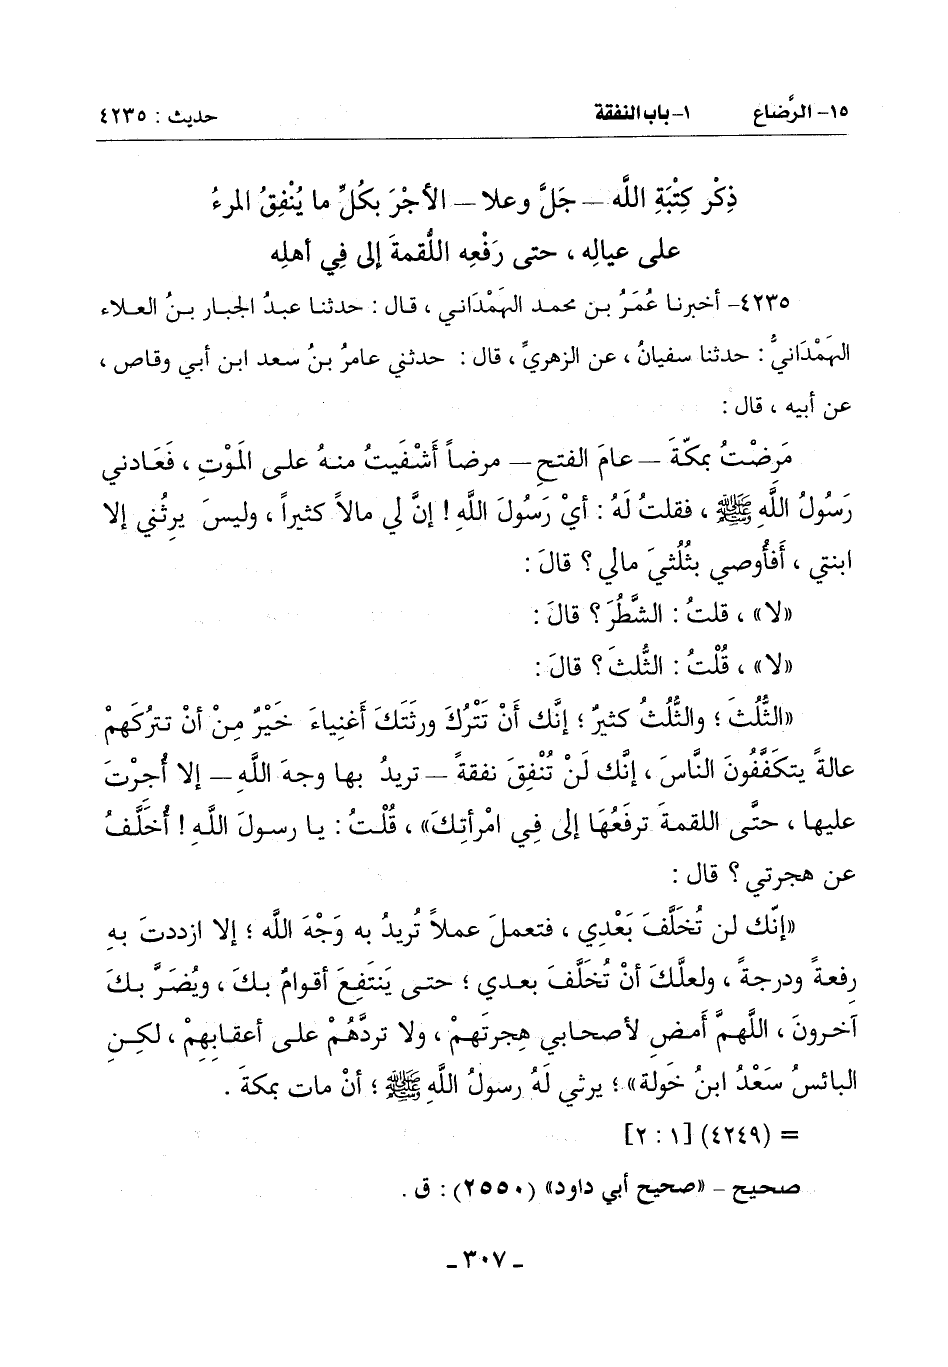 ١٥- الرَّضاع ١- باب النفقة حديث : ٤٢٣٥
ذِكْر كِتْبَةِ اللَّه – جَلَّ وعلا – الأجْرَ بكُلِّ ما يُنْفِقُ المرءُ
على عيالِه ، حتى رَفْعِه اللُّقمةَ إلى فِي أهلِه
٤٢٣٥- أخبرنا عُمَرُ بن محمد الهَمْدَاني ، قال : حدثنا عبدُ الجبار بنُ العلاء
الهَمْدَانيُّ : حدثنا سفيانُ ، عن الزهريِّ ، قال : حدثني عامرُ بنُ سعد ابن أبي وقاص ،
عن أبيه ، قال :
مَرِضْتُ بمكَّةَ – عامَ الفتحِ – مرضاً أشْفَيتُ منهُ على المَوْتِ ، فَعَادني
رَسُولُ اللَّهِ ﷺ ، فقلتُ لَهُ : أيْ رَسُولَ اللَّهِ ! إنَّ لي مالاً كثيراً ، وليسَ يرِثُني إلا
ابنتي ، أَفَأُوصي بثُلُثيَ مالي ؟ قالَ :
«لا» ، قلتُ : الشَّطْرَ ؟ قالَ :
«لا» ، قُلْتُ : الثُّلثَ ؟ قالَ :
«الثُّلُثَ ؛ والثُّلُثُ كثيرٌ ؛ إنَّك أَنْ تَتْرُكَ ورثَتَكَ أَغنِياءَ خَيْرٌ مِنْ أنْ تتركَهمْ
عالةً يتكَفَّفُونَ النَّاسَ ، إنَّك لَنْ تُنْفِقَ نفقةً – تريدُ بها وجهَ اللَّهِ – إلا أُجِرْتَ
عليها ، حتَّى اللقمةَ ترفَعُهَا إلى فِي امْرأتِكَ» ، قُلْتُ : يا رسولَ اللَّهِ ! أُخَلَّفُ
عن هجرتي ؟ قال :
«إنَّك لن تُخَلَّفَ بَعْدِي ، فتعملَ عملاً تُريدُ به وَجْهَ اللَّه ؛ إلا ازددتَ بهِ
رفعةً ودرجةً ، ولعلَّكَ أنْ تُخَلَّفَ بعدي ؛ حتى يَنتَفِعَ أقوامٌ بكَ ، ويُضَرَّ بكَ
آخرونَ ، اللَّهمَّ أَمضِ لأصحابي هِجرتَهمْ ، ولا تردَّهُمْ على أعقابِهِمْ ، لكنِ
البائسُ سَعْدُ ابنُ خَولة» ؛ يرثي لَهُ رسولُ اللَّهِ ﷺ ؛ أنْ مات بمكةَ .
= (٤٢٤٩) [١ : ٢]
صحيح – «صحيح أبي داود» (٢٥٥٠) : ق .
ـ ٣٠٧ ـ